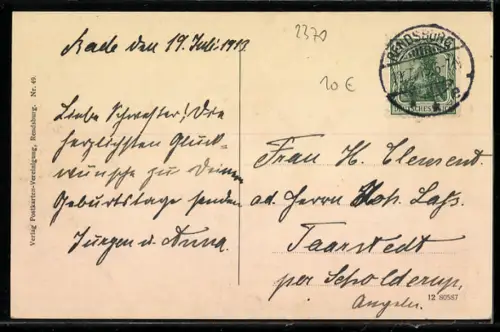 Rade den 19. Juli 1913
2370
10 €
RENDSBURG
Liebe Schwester! Die
herzlichsten Glück-
wünsche zu Deinem
Geburtstage senden
Jürgen u. Anna.
Frau H. Clement.
ad. Herrn Joh. Laß.
Taarstedt
per Scholderup.
Angeln.
12 80587
Verlag Postkarten-Vereinigung, Rendsburg. Nr. 49.